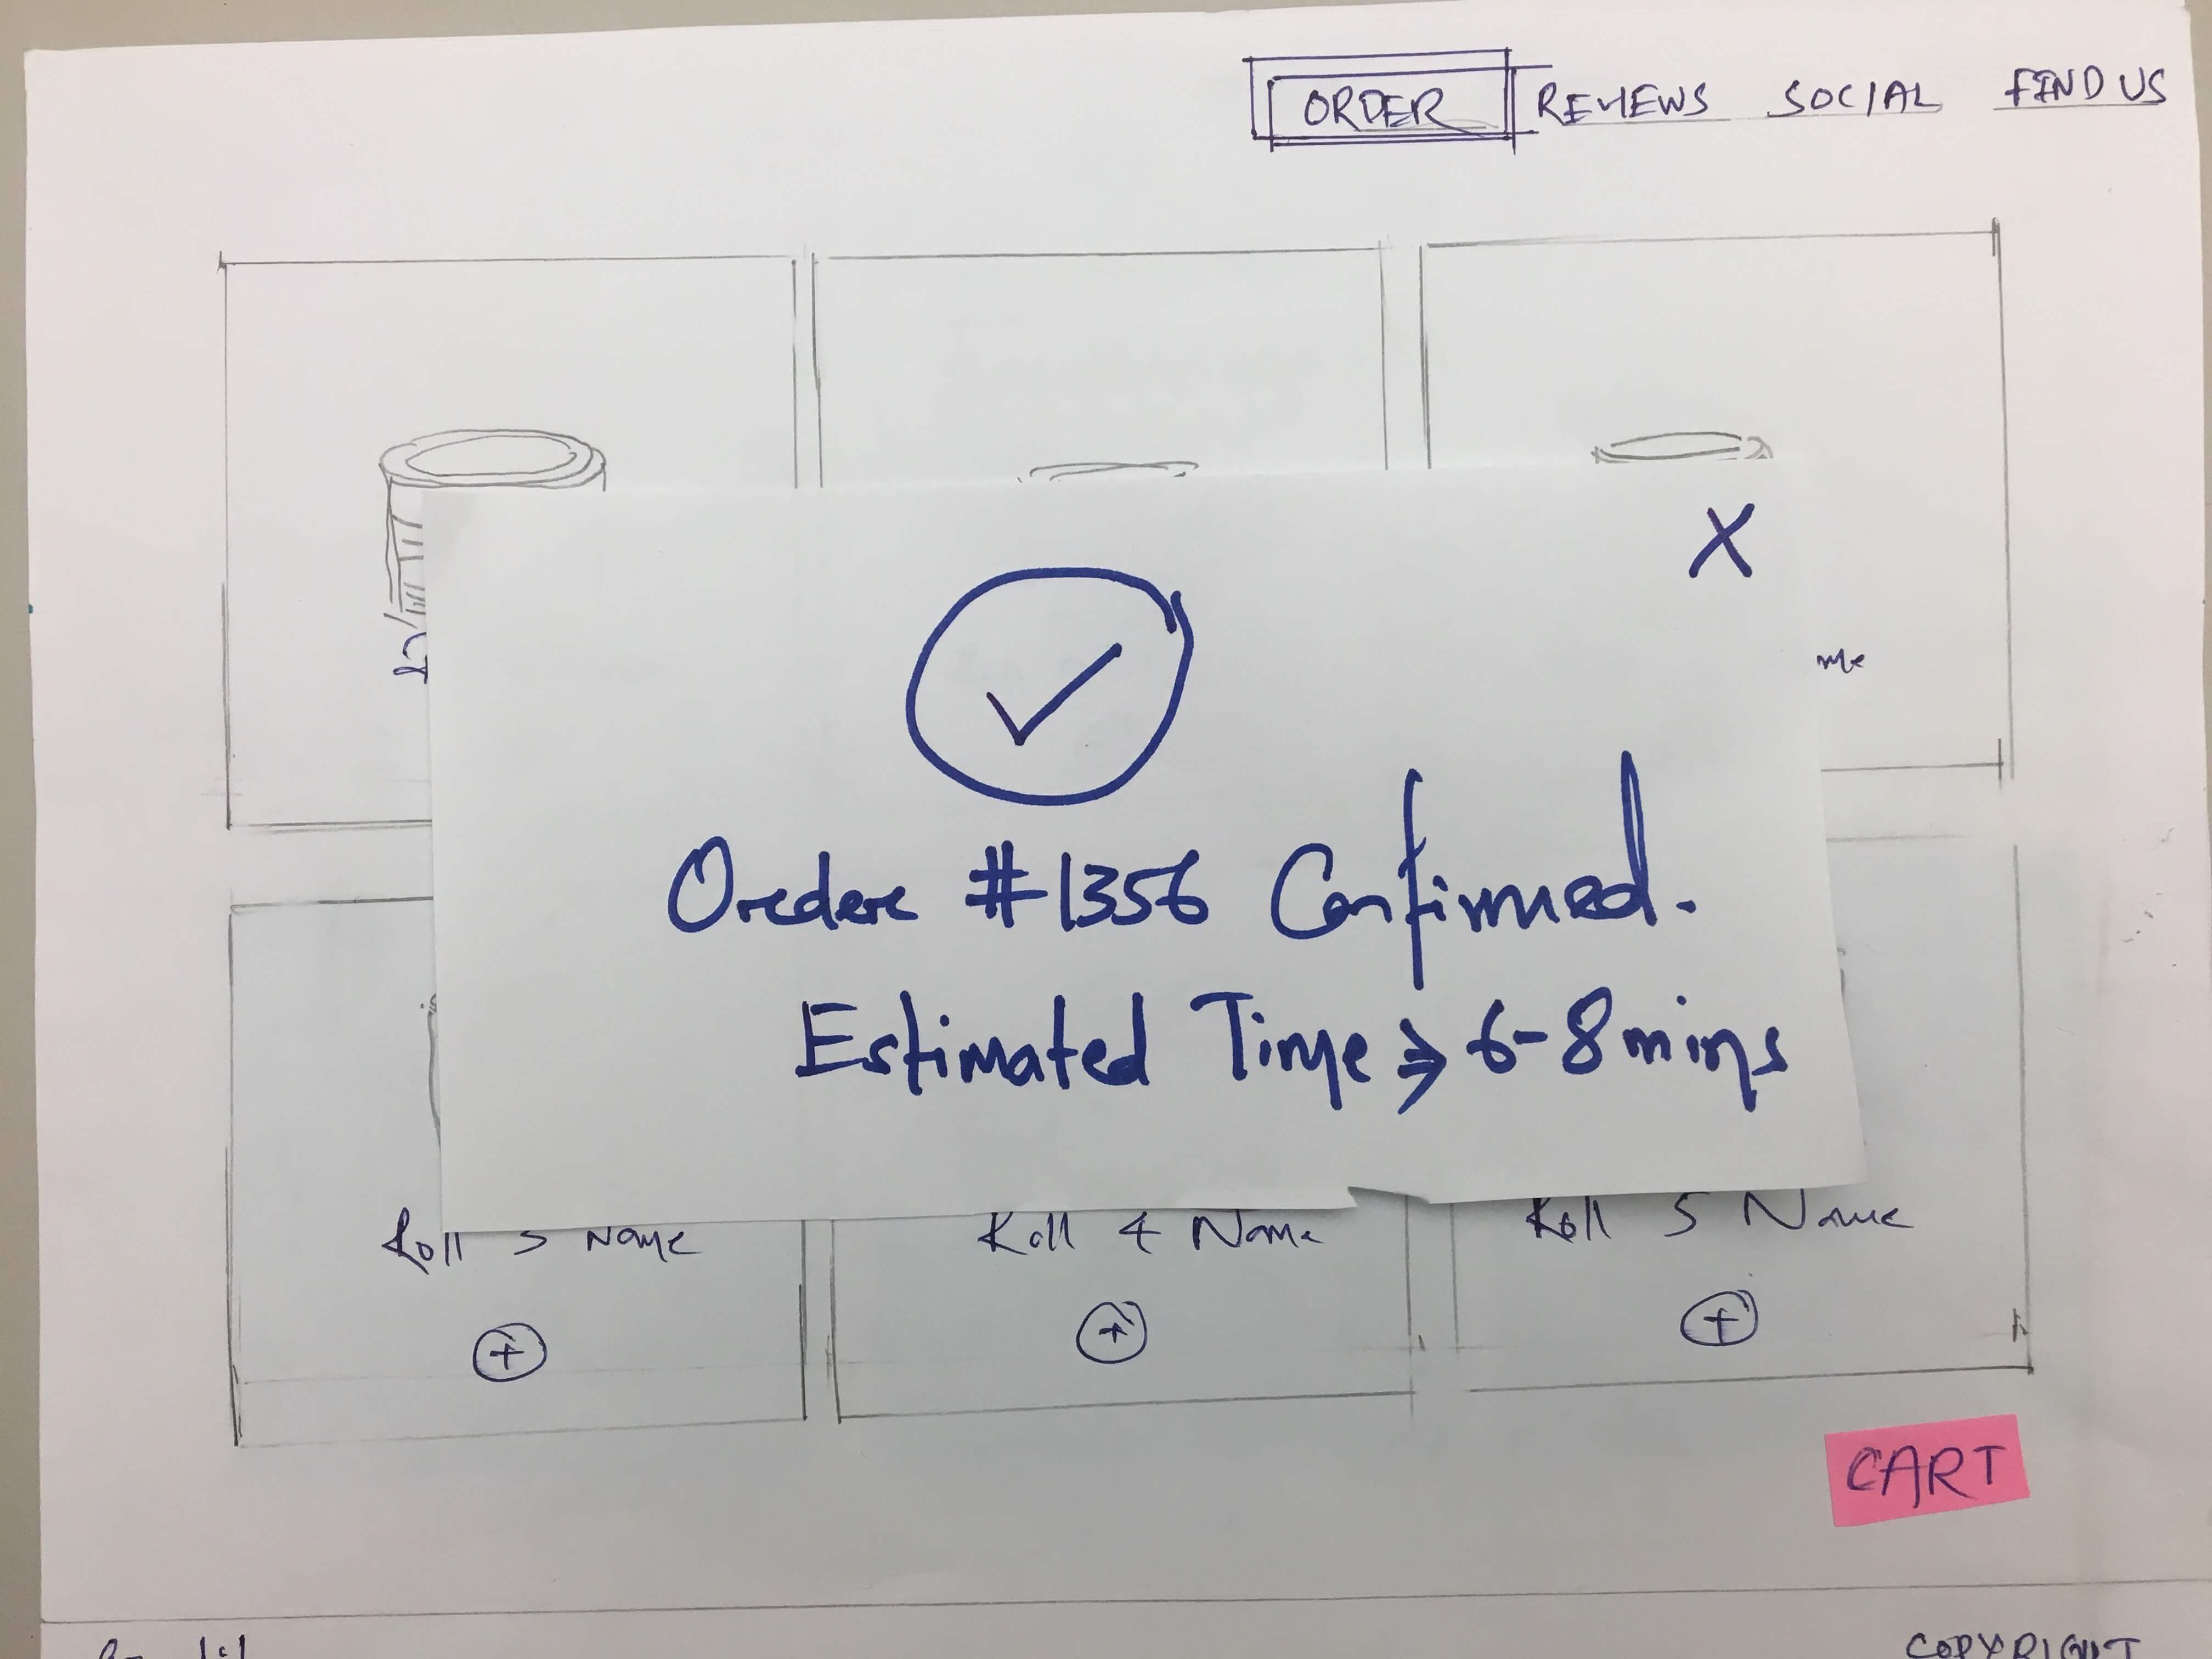 ORDER REVIEWS SOCIAL FIND US
X
me
Order #1356 Confirmed.
Estimated Time → 6-8 mins
Roll 3 Name Roll 4 Name Roll 5 Name
+ + +
CART
COPYRIGHT